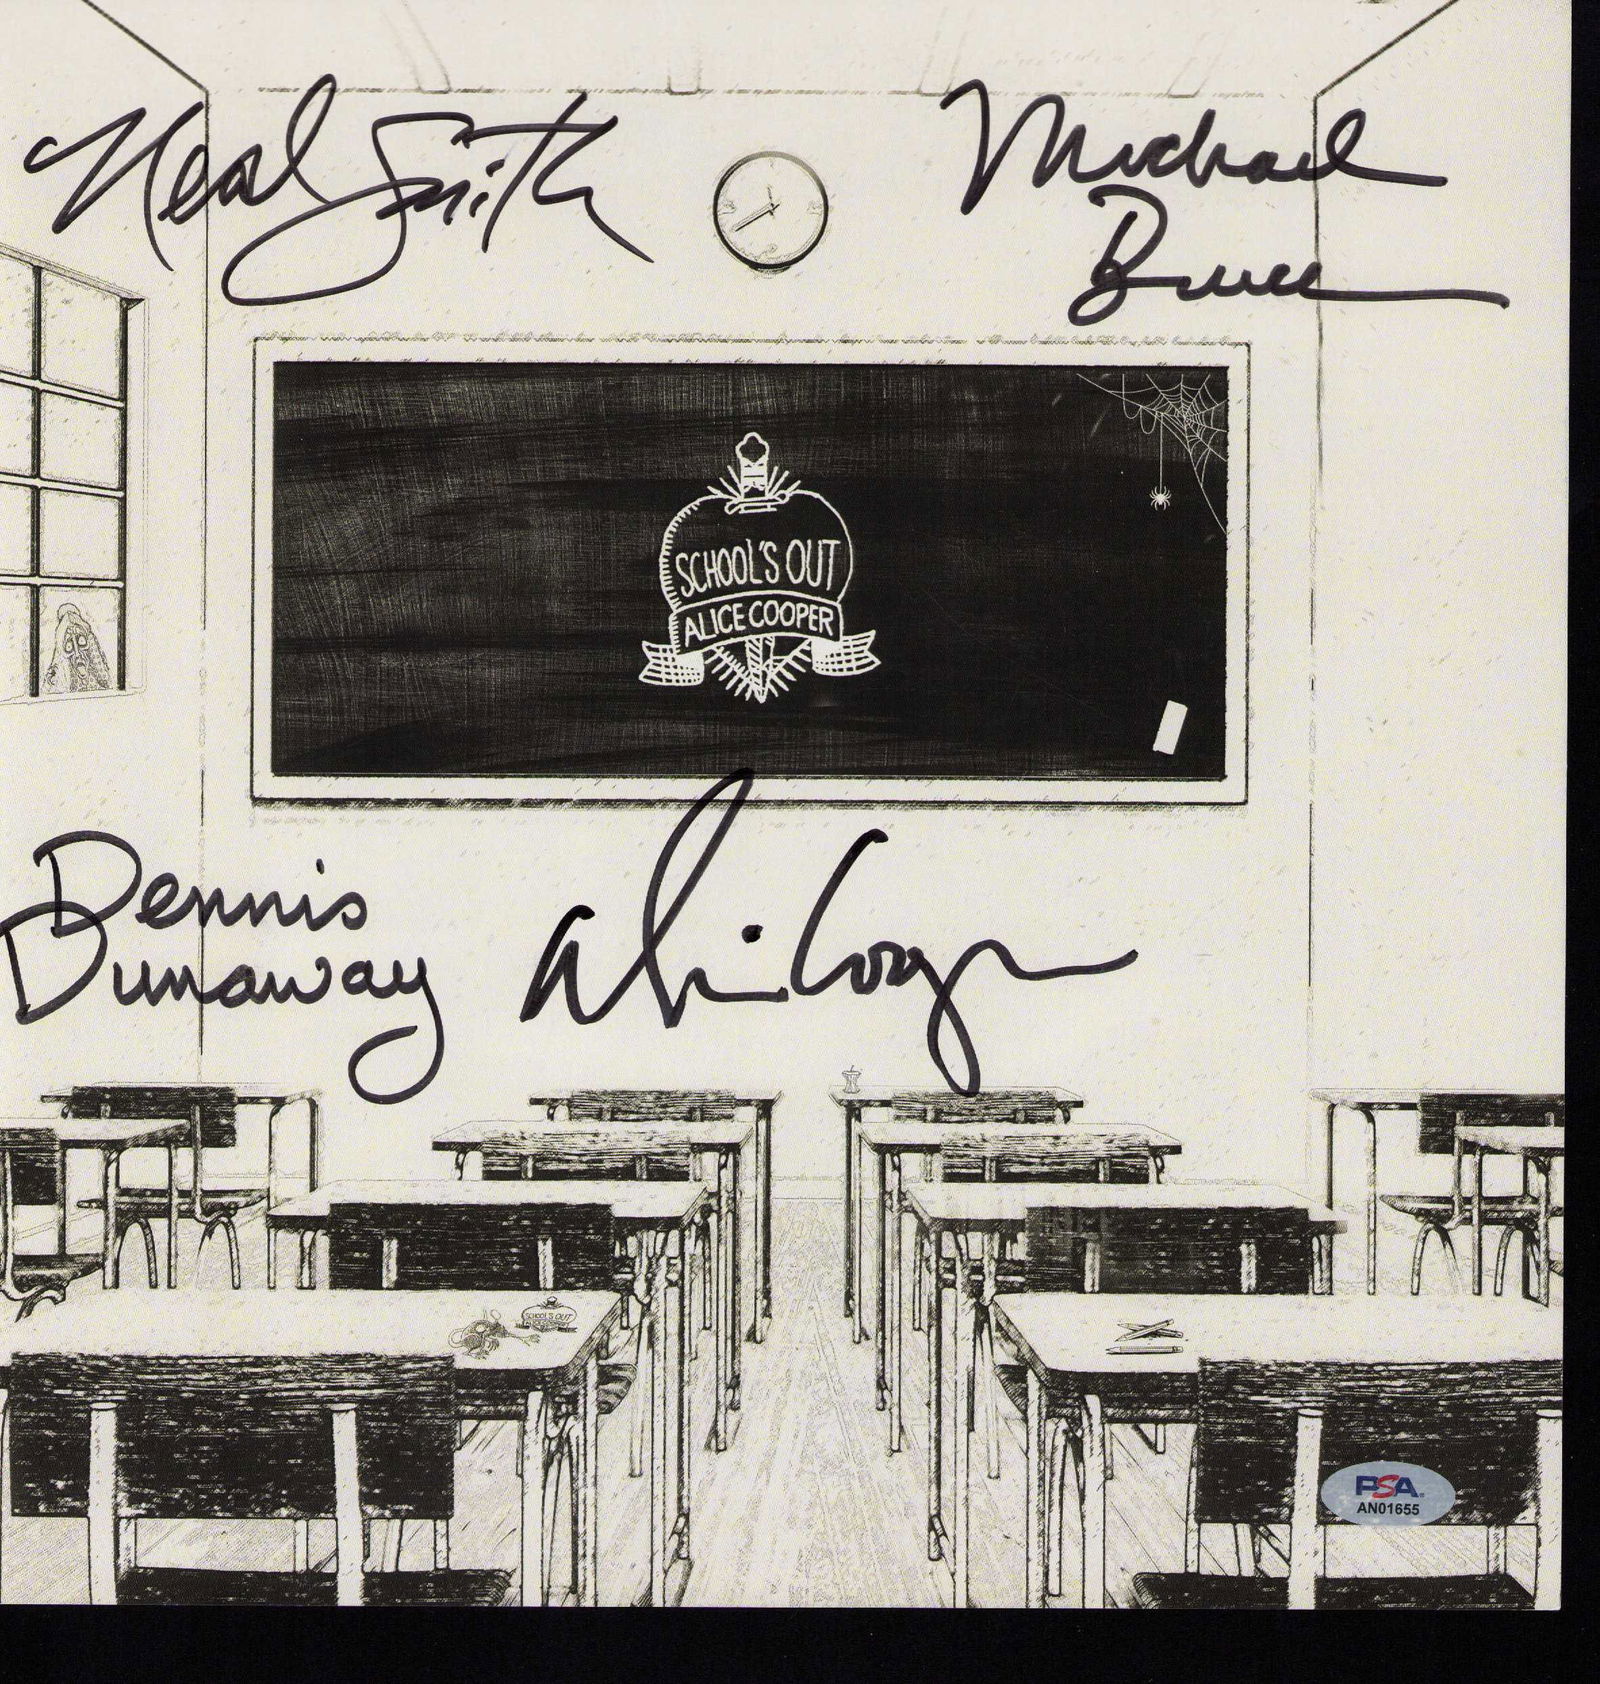 Neal Smith
Michael
Bruce
SCHOOL'S OUT
ALICE COOPER
Dennis
Dunaway
Alice Cooper
SCHOOL'S OUT
PSA
AN01655